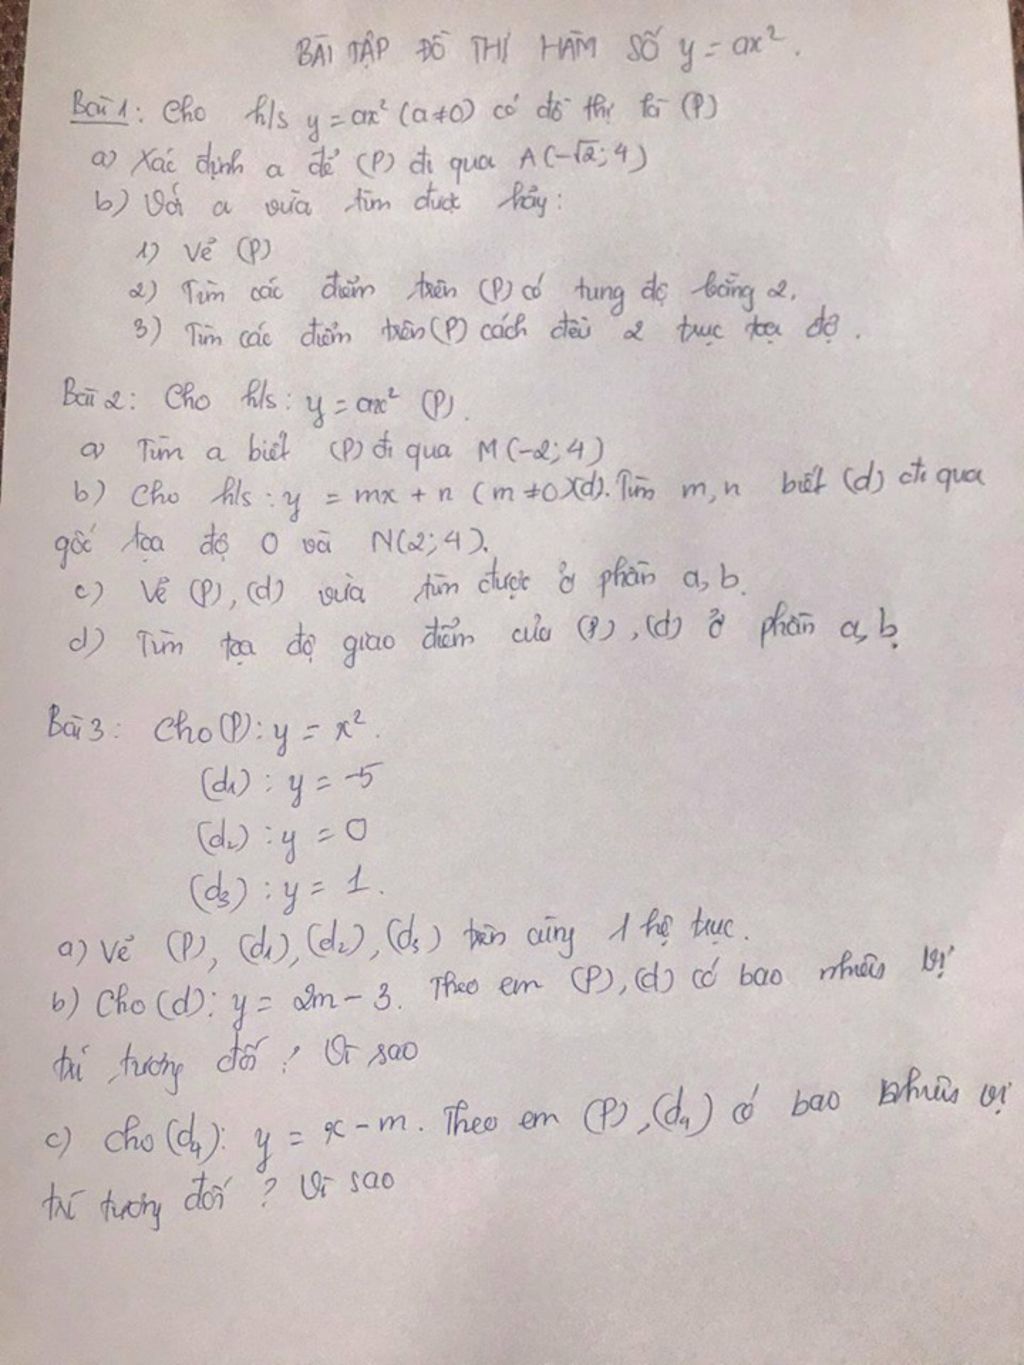 BÀI TẬP ĐỒ THỊ HÀM SỐ y = ax².
Bài 1: Cho h/s y = ax² (a ≠ 0) có đồ thị là (P)
a) Xác định a để (P) đi qua A(-√2; 4)
b) Với a vừa tìm được hãy:
1) Vẽ (P)
2) Tìm các điểm trên (P) có tung độ bằng 2.
3) Tìm các điểm trên (P) cách đều 2 trục tọa độ.
Bài 2: Cho h/s: y = ax² (P).
a) Tìm a biết (P) đi qua M(-2; 4)
b) Cho h/s: y = mx + n (m ≠ 0)(d). Tìm m, n biết (d) đi qua
gốc tọa độ O và N(2; 4).
c) Vẽ (P), (d) vừa tìm được ở phần a, b.
d) Tìm tọa độ giao điểm của (P), (d) ở phần a, b.
Bài 3: Cho (P): y = x².
(d₁) : y = -5
(d₂) : y = 0
(d₃) : y = 1.
a) Vẽ (P), (d₁), (d₂), (d₃) trên cùng 1 hệ trục.
b) Cho (d): y = 2m - 3. Theo em (P), (d) có bao nhiêu vị
trí tương đối ? Vì sao
c) Cho (d₄): y = x - m. Theo em (P), (d₄) có bao nhiêu vị
trí tương đối ? Vì sao